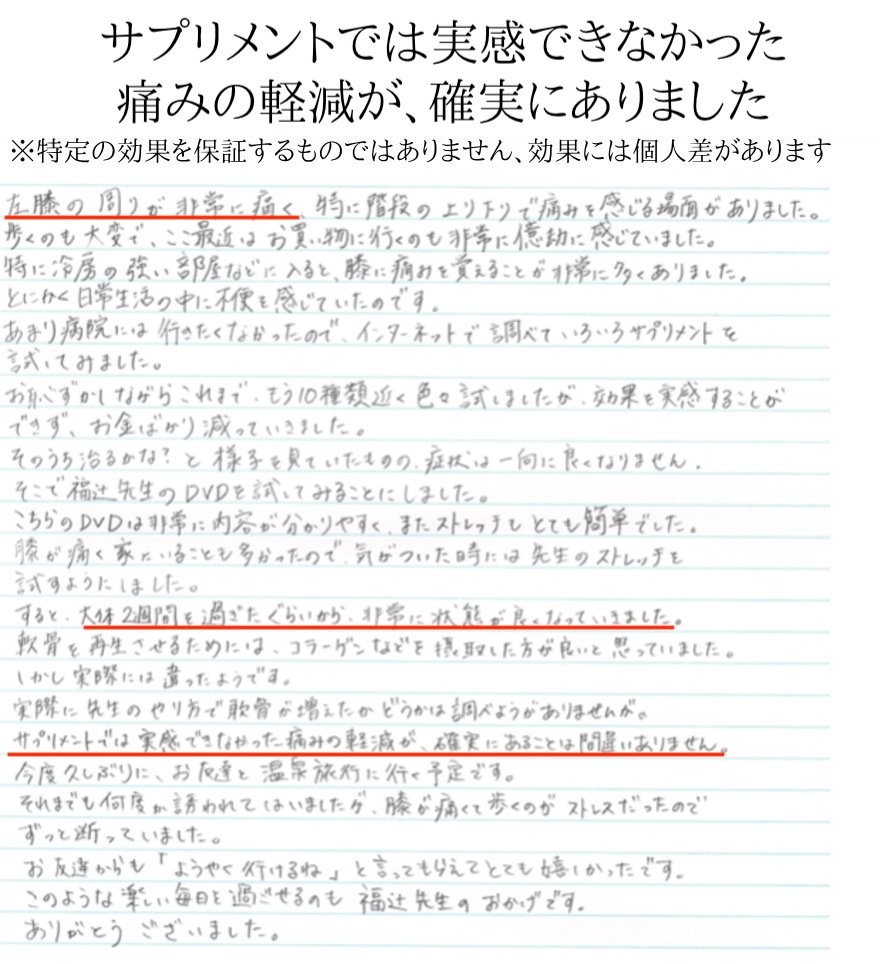 サプリメントでは実感できなかった
痛みの軽減が、確実にありました
※特定の効果を保証するものではありません、効果には個人差があります
左膝の周りが非常に痛く、特に階段の上り下りで痛みを感じる場面がありました。
歩くのも大変で、ここ最近はお買い物に行くのも非常に億劫に感じていました。
特に冷房の強い部屋などに入ると、膝に痛みを覚えることが非常に多くありました。
とにかく日常生活の中に不便を感じていたのです。
あまり病院には行きたくなかったので、インターネットで調べていろいろサプリメントを
試してみました。
お恥ずかしながらこれまで、もう10種類近く色々試しましたが、効果を実感することが
できず、お金ばかり減っていきました。
そのうち治るかな?と様子を見ていたものの、症状は一向に良くなりません。
そこで福辻先生のDVDを試してみることにしました。
こちらのDVDは非常に内容が分かりやすく、またストレッチもとても簡単でした。
膝が痛く家にいることも多かったので、気がついた時には先生のストレッチを
試すようにしました。
すると、大体2週間を過ぎたぐらいから、非常に状態が良くなっていきました。
軟骨を再生させるためには、コラーゲンなどを摂取した方が良いと思っていました。
しかし実際には違ったようです。
実際に先生のやり方で軟骨が増えたかどうかは調べようがありませんが。
サプリメントでは実感できなかった痛みの軽減が、確実にあることは間違いありません。
今度久しぶりに、お友達と温泉旅行に行く予定です。
それまでも何度か誘われてはいましたが、膝が痛くて歩くのがストレスだったので
ずっと断っていました。
お友達からも「ようやく行けるね」と言ってもらえてとても嬉しかったです。
このような楽しい毎日を過ごせるのも福辻先生のおかげです。
ありがとうございました。